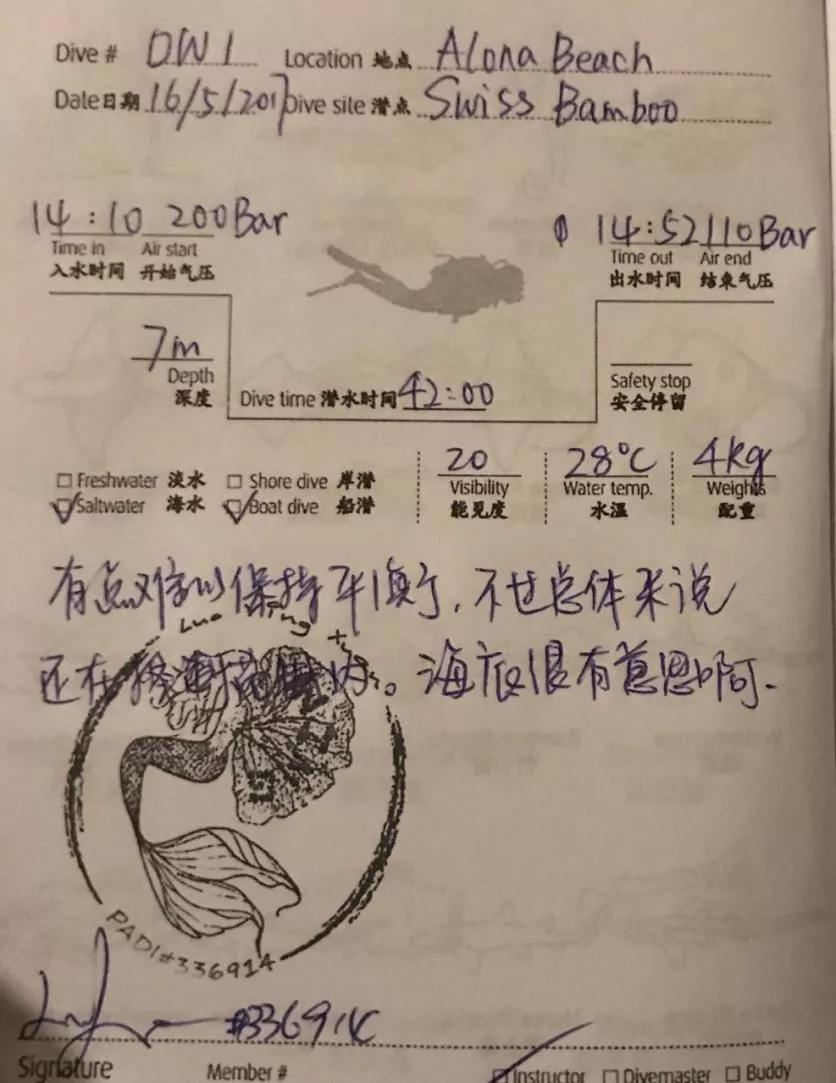 Dive # OW1 Location 地点 Alona Beach
Date日期 16/5/2017 Dive site 潜点 Swiss Bamboo
14:10 200Bar 14:52 110Bar
Time in Air start Time out Air end
入水时间 开始气压 出水时间 结束气压
7m
Depth Safety stop
深度 Dive time 潜水时间 42:00 安全停留
20 28°C 4kg
Freshwater 淡水 Shore dive 岸潜 Visibility Water temp. Weights
Saltwater 海水 Boat dive 船潜 能见度 水温 配重
有点难以保持平衡了,不过总体来说
还在 内。海底很有意思啊.
PADI#336914
#336914
Signature Member # Instructor Divemaster Buddy